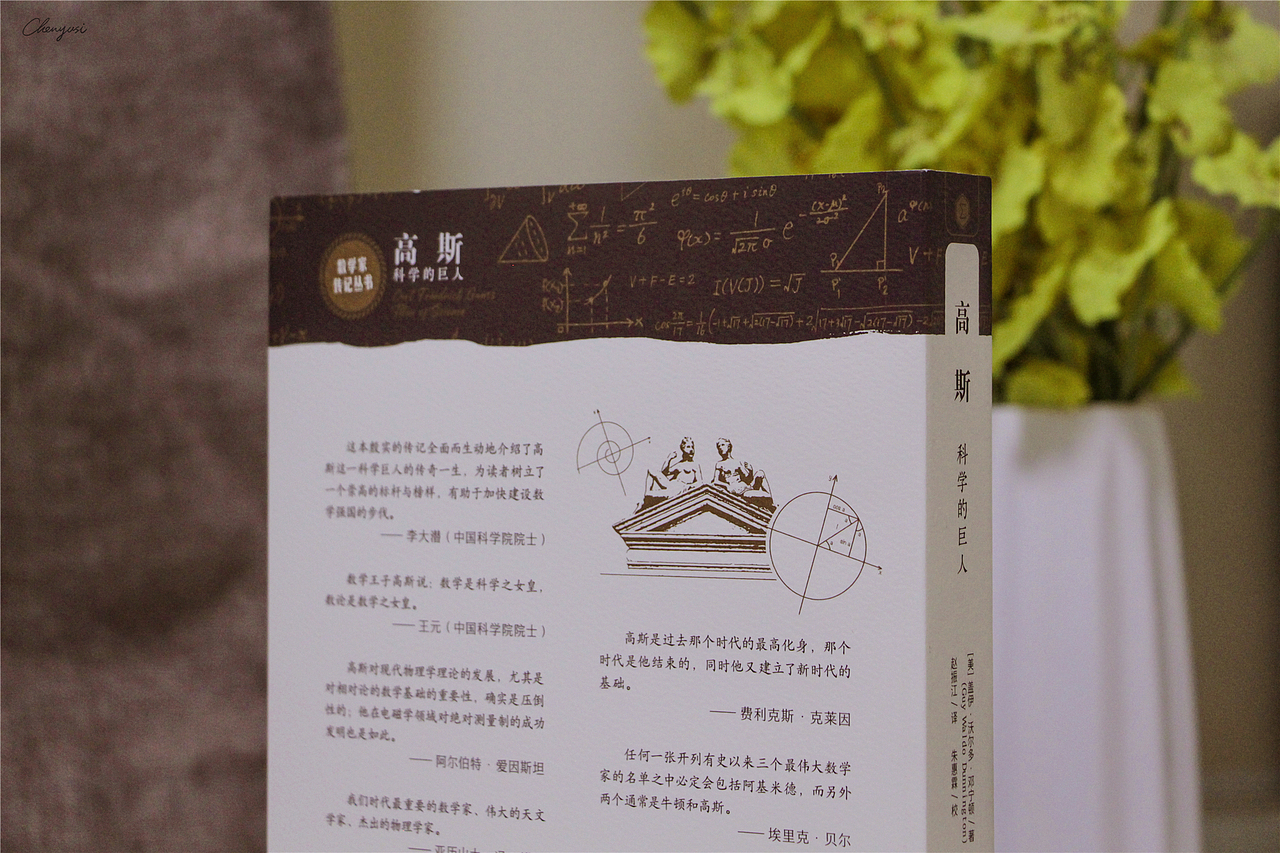 Chenyusi
数学家
传记丛书
高 斯
科学的巨人
Carl Friedrich Gauss
Titan of Science
e^{iθ}=cosθ+i sinθ
\sum_{n=1}^{+∞} \frac{1}{n²} = \frac{π²}{6}
φ(x)= \frac{1}{\sqrt{2π}σ} e^{-\frac{(x-μ)²}{2σ²}}
V+F-E=2
I(V(J))=√J
这本殷实的传记全面而生动地介绍了高
斯这一科学巨人的传奇一生，为读者树立了
一个崇高的标杆与榜样，有助于加快建设数
学强国的步伐。
—— 李大潜（中国科学院院士）
数学王子高斯说：数学是科学之女皇，
数论是数学之女皇。
—— 王元（中国科学院院士）
高斯对现代物理学理论的发展，尤其是
对相对论的数学基础的重要性，确实是压倒
性的；他在电磁学领域对绝对测量制的成功
发明也是如此。
—— 阿尔伯特·爱因斯坦
我们时代最重要的数学家、伟大的天文
学家、杰出的物理学家。
高斯是过去那个时代的最高化身，那个
时代是他结束的，同时他又建立了新时代的
基础。
—— 费利克斯·克莱因
任何一张开列有史以来三个最伟大数学
家的名单之中必定会包括阿基米德，而另外
两个通常是牛顿和高斯。
—— 埃里克·贝尔
高 斯 科学的巨人
［美］盖伊·沃尔多·邓宁顿/著
(Guy Waldo Dunnington)
赵振江/译 朱惠霖/校